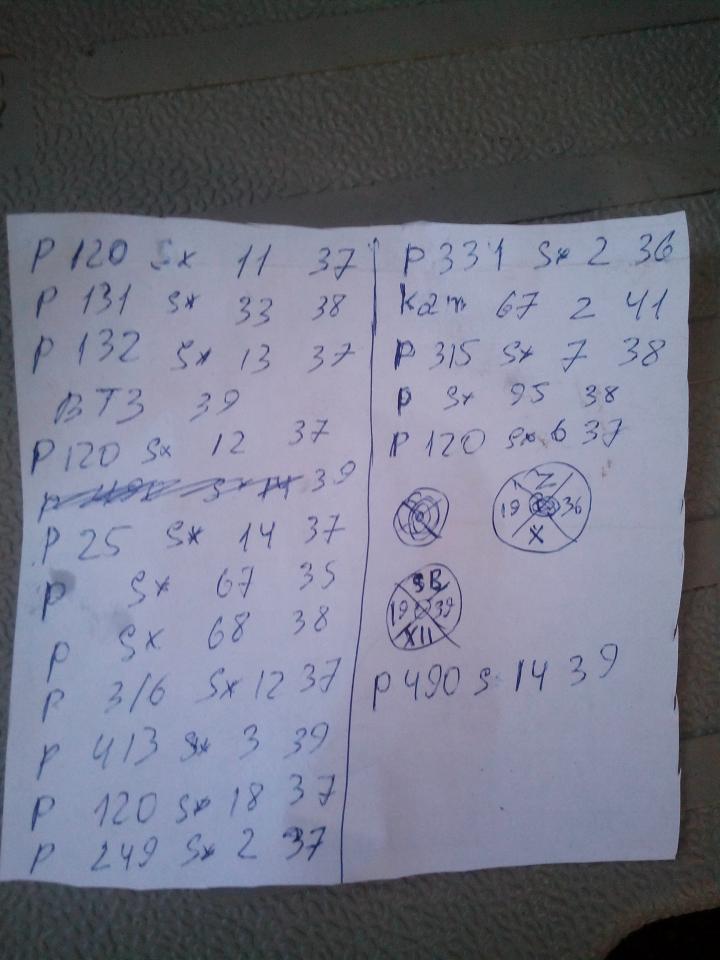 P 120 Sx 11 37
P 131 Sx 33 38
P 132 Sx 13 37
ВТЗ 39
P 120 Sx 12 37
39
P 25 Sx 14 37
P Sx 67 35
P Sx 68 38
P 316 Sx 12 37
P 413 Sx 3 39
P 120 Sx 18 37
P 249 Sx 2 37
P 331 Sx 2 36
Kam 67 2 41
P 315 Sx 7 38
P Sx 95 38
P 120 Sx 6 37
Z
19 36
X
SB
19 39
XII
P 490 S 14 39